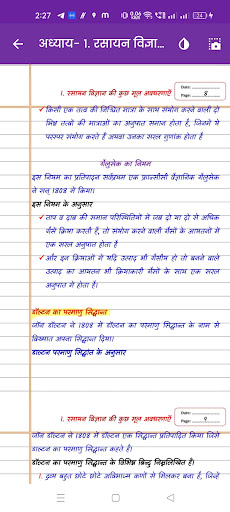 2:27
अध्याय- 1. रसायन विज्ञा...
Date:
Page: 8
1. रसायन विज्ञान की कुछ मूल अवधारणाएँ
✓ किसी एक तत्व की निश्चित मात्रा के साथ संयोग करने वाली दो
भिन्न तत्वों की मात्राओं का अनुपात समान होता है, जिनमें ये
परस्पर संयोग करते हैं अथवा उनका सरल गुणांक होता है
गैलुसेक का नियम
इस नियम का प्रतिपादन सर्वप्रथम एक फ्रान्सीसी वैज्ञानिक गैलुसेक
ने सन् 1808 में किया।
इस नियम के अनुसार
✓ ताप व दाब की समान परिस्थितियों में जब दो या दो से अधिक
गैसें क्रिया करती हैं, तो संयोग करने वाली गैसों के आयतनों में
एक सरल अनुपात होता है
✓ और इन क्रियाओं में यदि उत्पाद भी गैसीय हो तो बनने वाले
उत्पाद का आयतन भी क्रियाकारी गैसों के साथ एक सरल
अनुपात में होता है।
डॉल्टन का परमाणु सिद्धान्त
जॉन डॉल्टन ने 1808 में डॉल्टन का परमाणु सिद्धान्त के नाम से
विख्यात अपना सिद्धान्त दिया।
डाल्टन परमाणु सिद्धांन के अनुसार
Date:
Page: 9
1. रसायन विज्ञान की कुछ मूल अवधारणाएँ
जॉन डॉल्टन ने 1808 में डॉल्टन एक सिद्धान्त प्रतिपादित किया जिसे
डाल्टन का परमाणु सिद्धान्त कहते है।
डॉल्टन का परमाणु सिद्धान्त के विभिन्न बिन्दु निम्नलिखित हैं।
1. द्रव्य बहुत छोटे छोटे अविभाज्य कणों से मिलकर बना है, जिन्हें